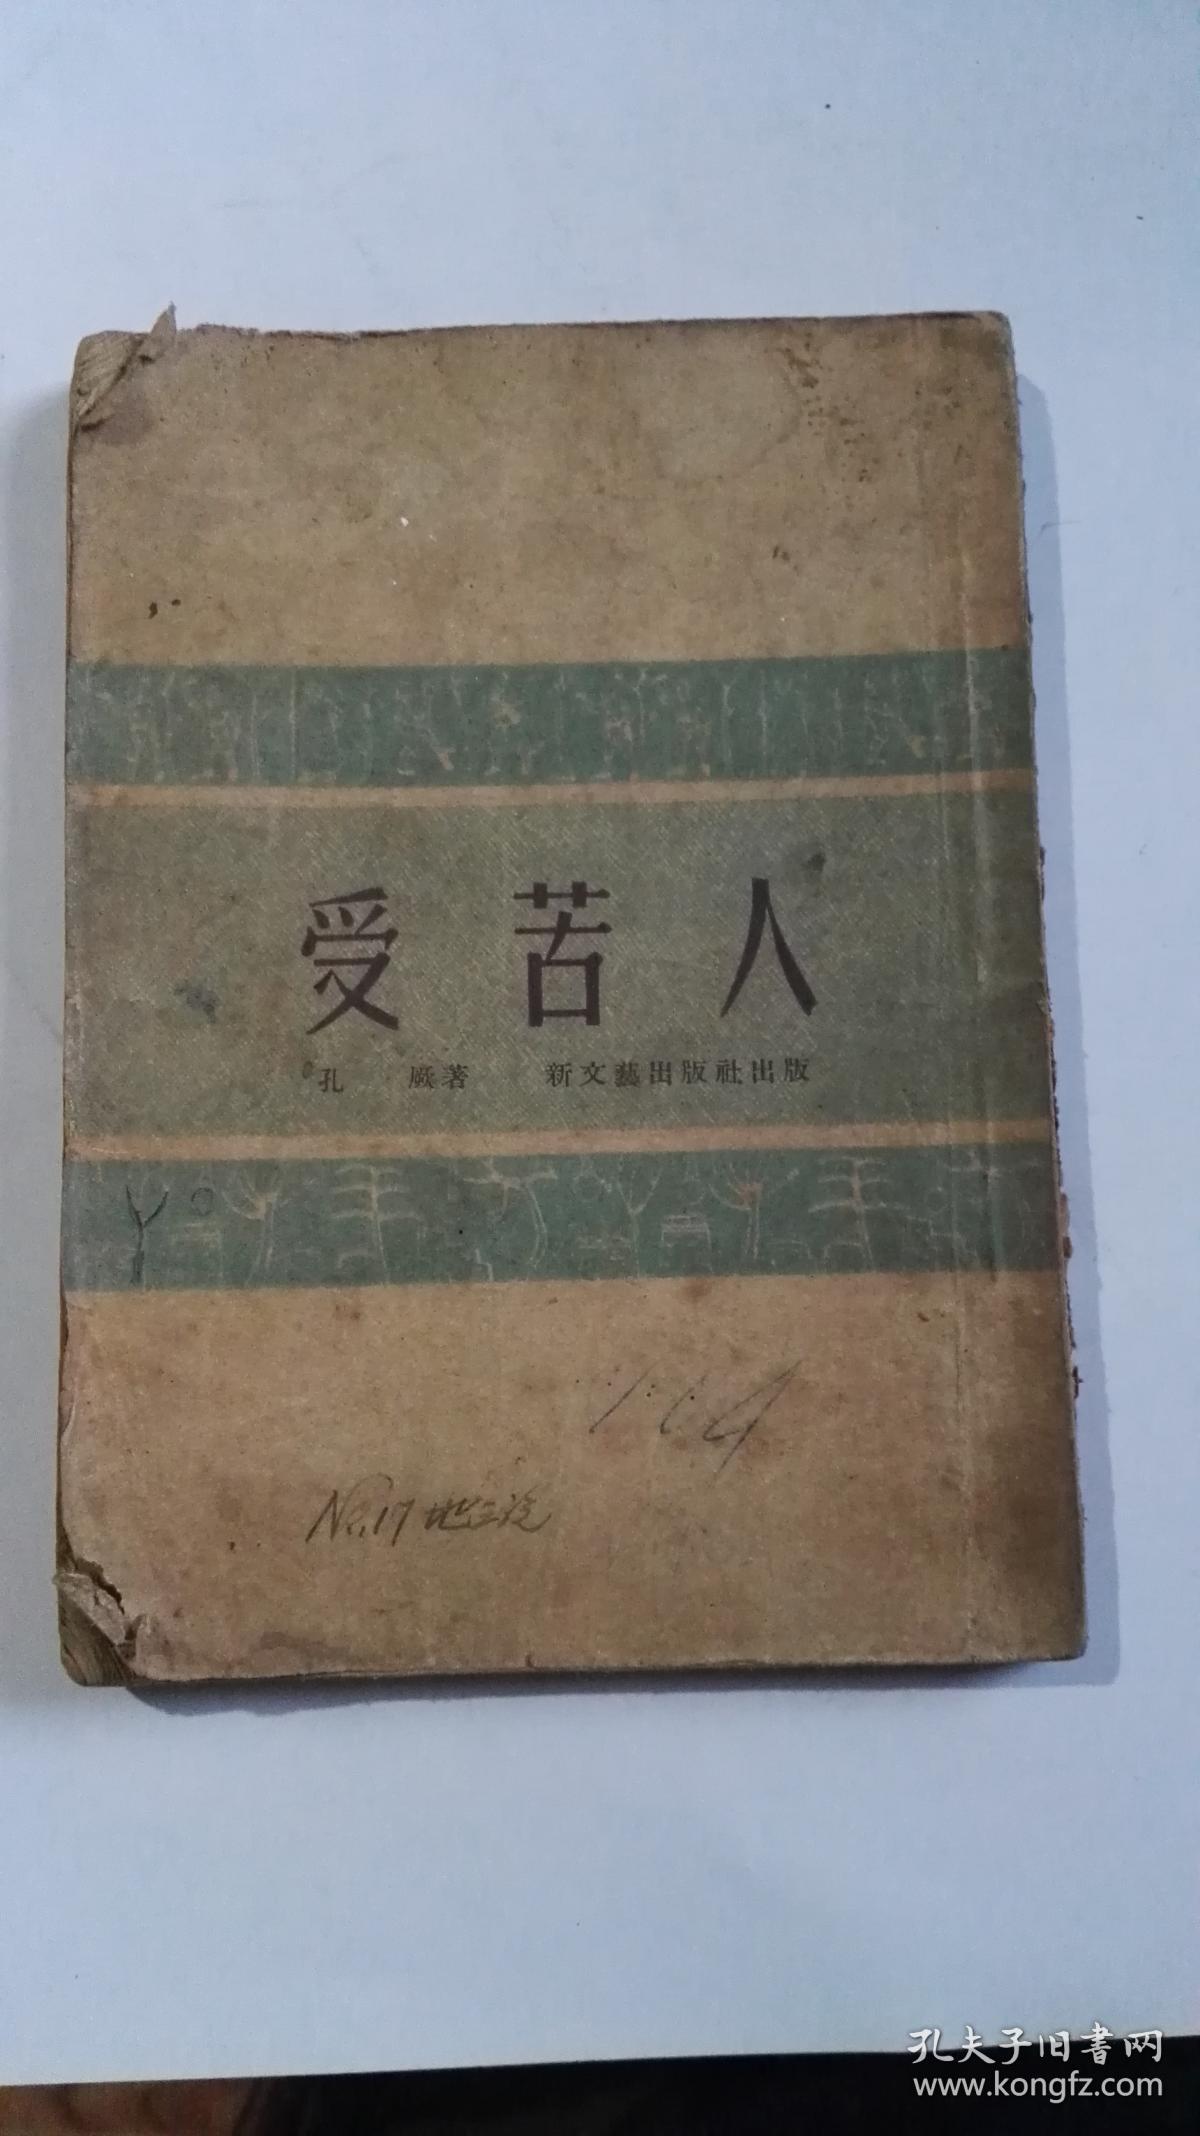 受苦人
孔 厥著 新文藝出版社出版
No.17
孔夫子旧書网
www.kongfz.com